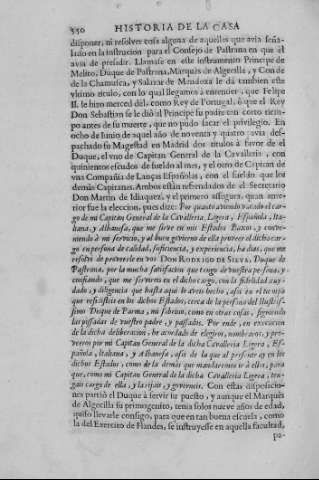 550 HISTORIA DE LA CASA
disponer, ni resolver cosa alguna de aquellas que avia seña-
lado en la instrucion para el Consejo de Pastrana en que él
avia de presidir. Llamase en este instrumento Principe de
Melito, Duque de Pastrana, Marquès de Algecilla, y Conde
de la Chamusca, y Salazar de Mendoza le dà tambien este
vltimo titulo, con lo qual llegamos à entender, que Felipe
II. le hizo merced dèl, como Rey de Portugal, ò que el Rey
Don Sebastian se le diò al Principe su padre con corto tiem-
po antes de su muerte, que no pudo sacar el privilegio. En
ocho de Iunio de aquel año de noventa y quatro avia des-
pachado su Magestad en Madrid dos titulos à favor de el
Duque, el vno de Capitan General de la Cavalleria, con
quinientos escudos de sueldo al mes, y el otro de Capitan de
vna Compañia de Lanças Españolas, con el sueldo que los
demàs Capitanes. Ambos estàn refrendados de el Secretario
Don Martin de Idiaquez, y el primero assegura, quan ante-
rior fue la eleccion, pues dize: Por quanto aviendo vacado el car-
go de mi Capitan General de la Cavalleria, Ligera, Española, Ita-
liana, y Albanesa, que me sirve en mis Estados Baxos, y convi-
niendo à mi servicio, y al buen govierno de ella proveer el dicho car-
go en persona de calidad, suficiencia, y experiencia, ha dias, que me
resolvi de proveerle en vos DON RODRIGO DE SILVA, Duque de
Pastrana, por la mucha satisfacion que tengo de vuestra persona, y
confiando, que me servireis en el dicho cargo, con la fidelidad, cuyda-
do, y diligencia que hasta aqui lo aveis hecho, assi en el tiempo
que residisteis en los dichos Estados, cerca de la persona del Ilustris-
simo Duque de Parma, mi sobrino, como en otras cosas, siguiendo
las pisadas de vuestro padre, y passados. Por ende, en execucion
de la dicha deliberacion, he acordado de elegiros, nombraros, y pro-
veeros por mi Capitan General de la dicha Cavalleria Ligera, Es-
pañola, Italiana, y Albanesa, assi de la que al presente ay en los
dichos Estados, como de la demàs que mandaremos ir à ellos, para
que, como mi Capitan General de la dicha Cavalleria Ligera, ten-
gais cargo de ella, y la rijais, y governeis. Con estas disposicio-
nes partiò el Duque à servir su puesto, y aunque el Marquès
de Algecilla su primogenito, tenia solos nueve años de edad,
quiso llevarle consigo, para que en tan buena escuela, como
la del Exercito de Flandes, se instruyesse en aquella facultad,
pa-